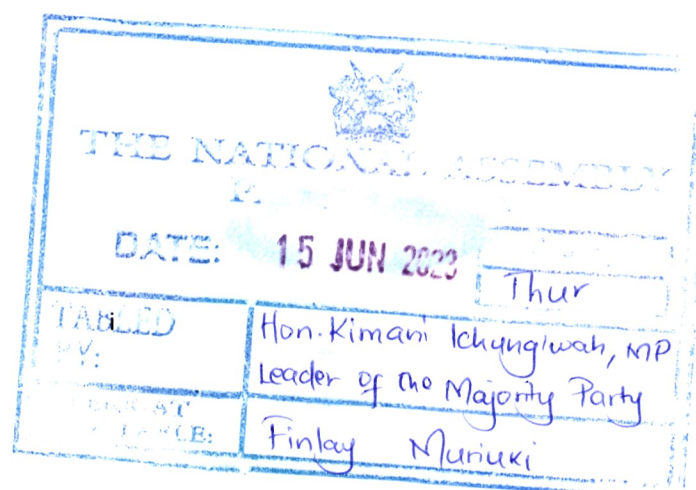 THE NATIONAL ASSEMBLY
DATE: 15 JUN 2023 Thur
TABLED BY: Hon. Kimani Ichung'wah, MP
Leader of the Majority Party
Finlay Muriuki